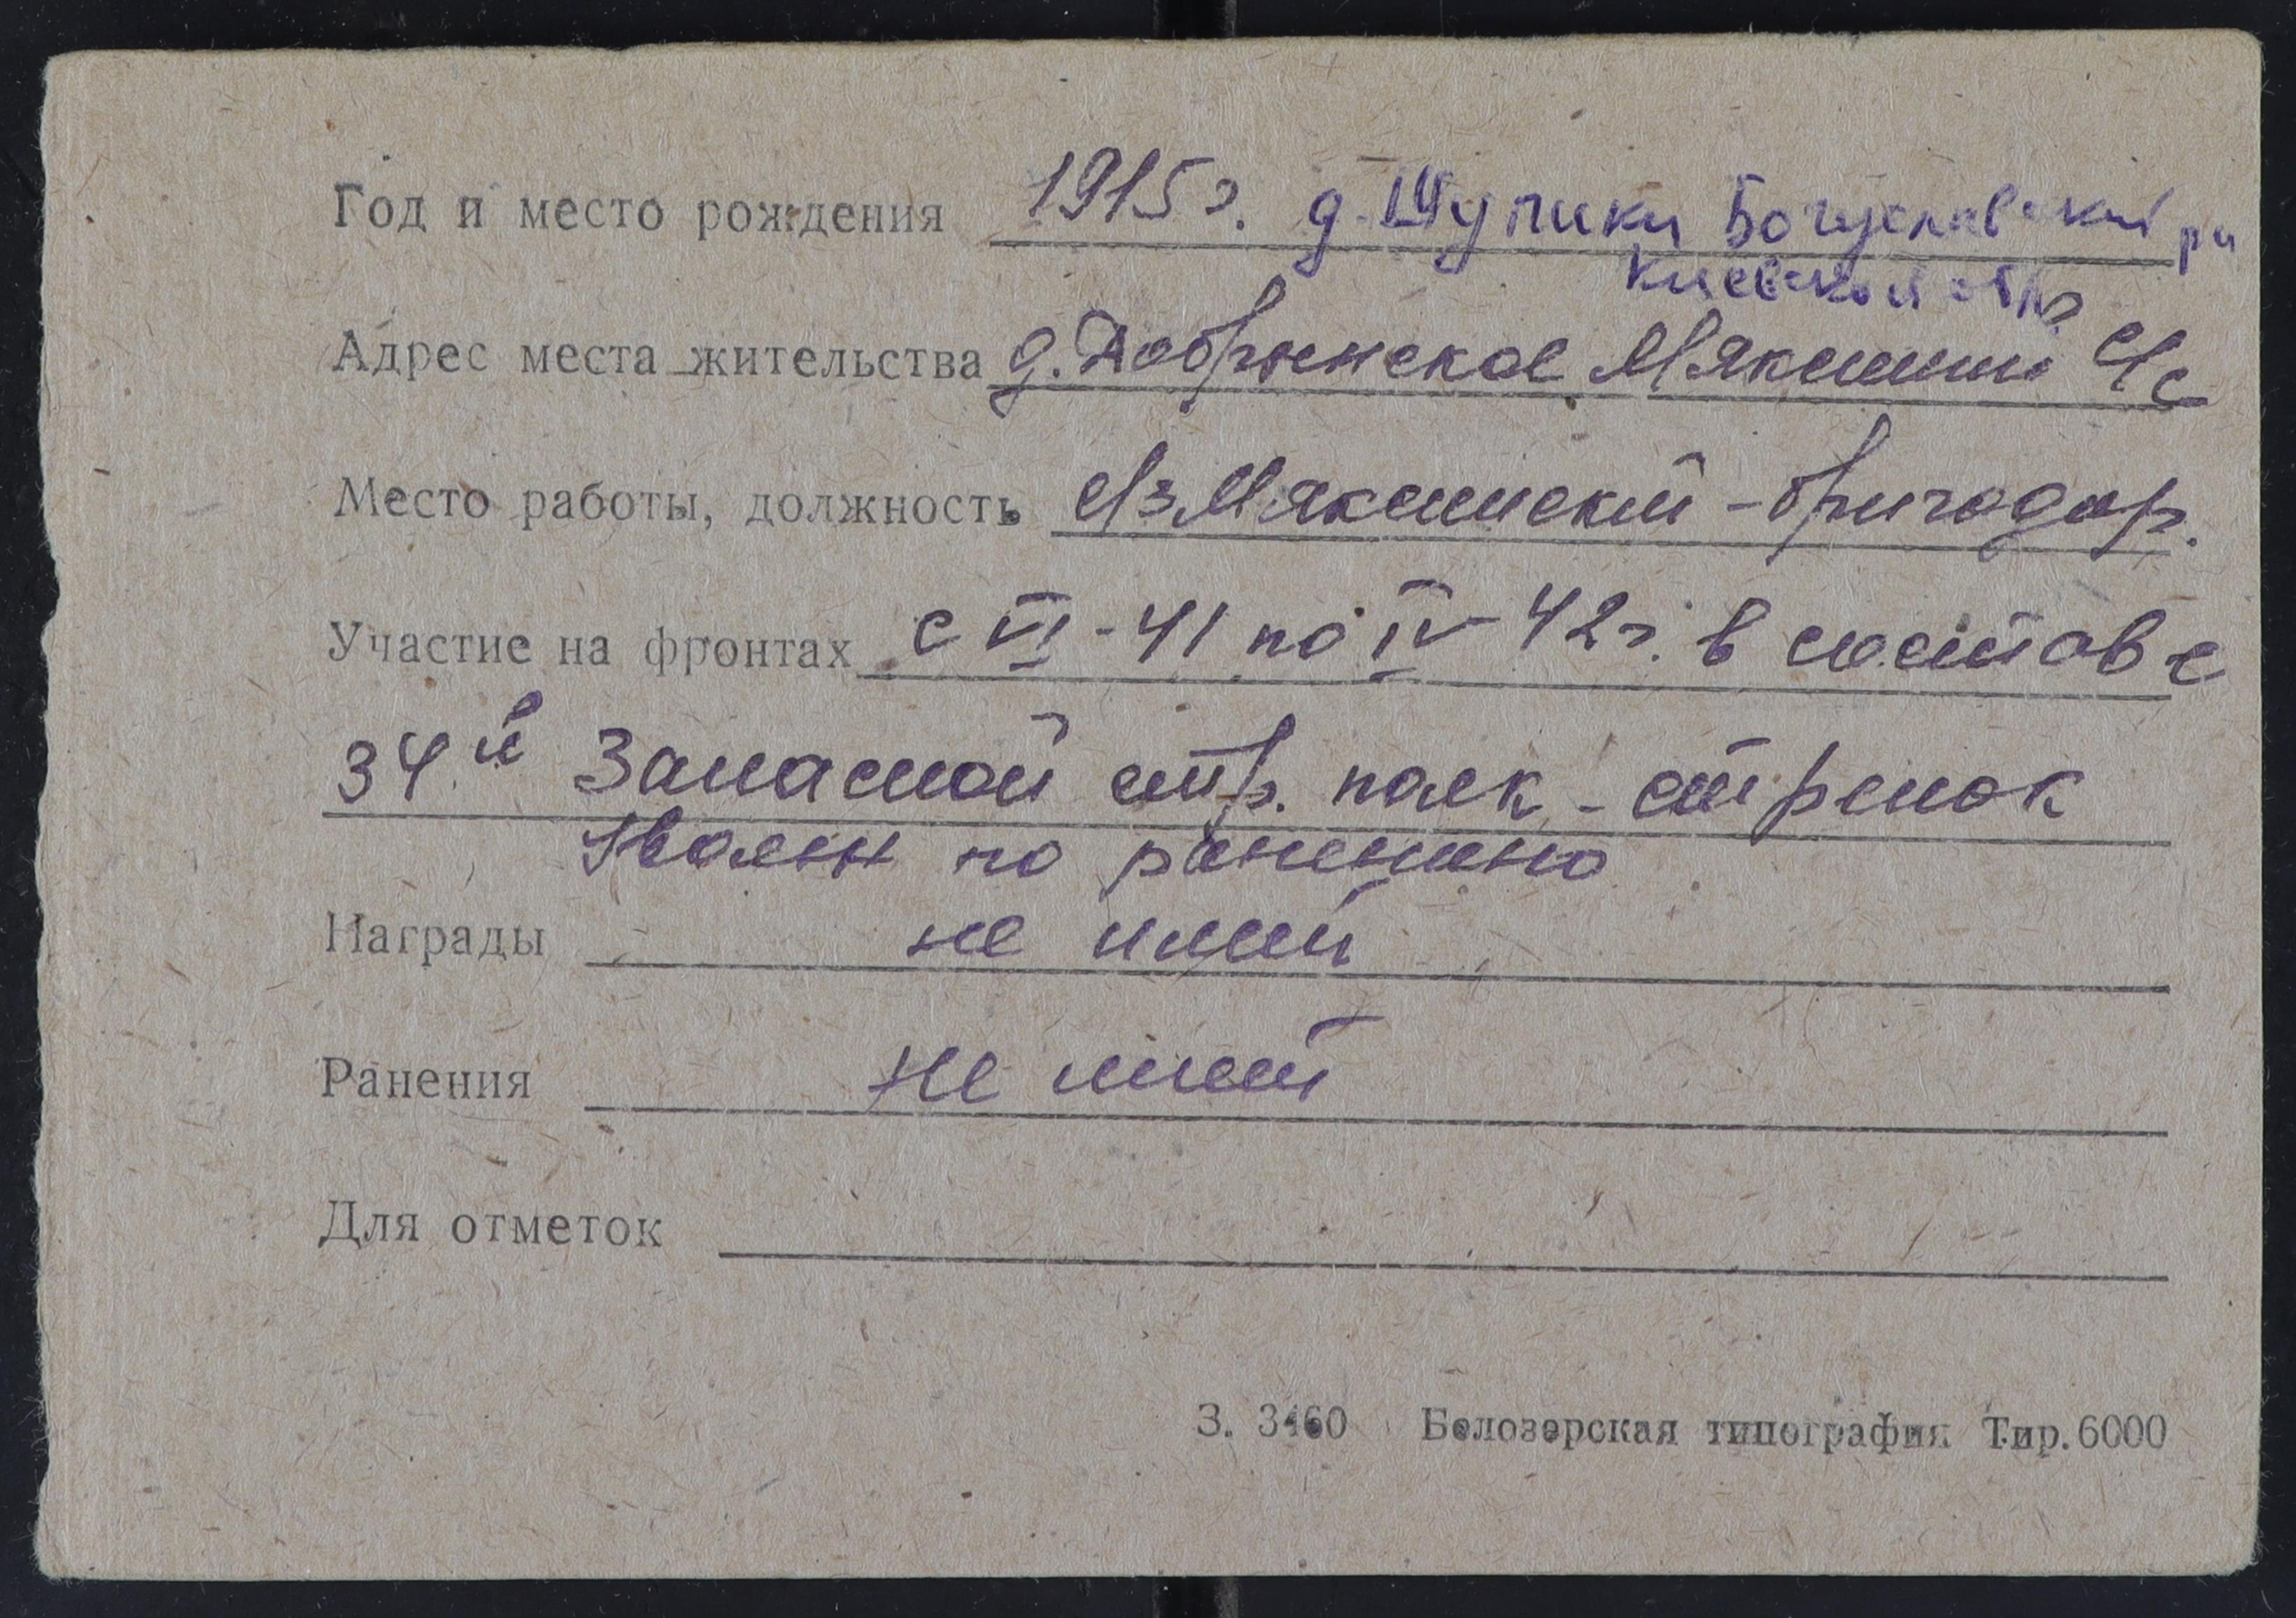 Год и место рождения 1915 г. д. Шупики Богуславский рн
Киевской обл
Адрес места жительства д. Добрынское Мяксинский с/с
Место работы, должность л/з Мяксинский - бригадир.
Участие на фронтах с VI - 41 по IV - 42 г. в составе
34й Запасной стр. полк - стрелок
Уволен по ранению
Награды не имеет
Ранения не имеет
Для отметок
З. 3460 Белозерская типография Тир. 6000